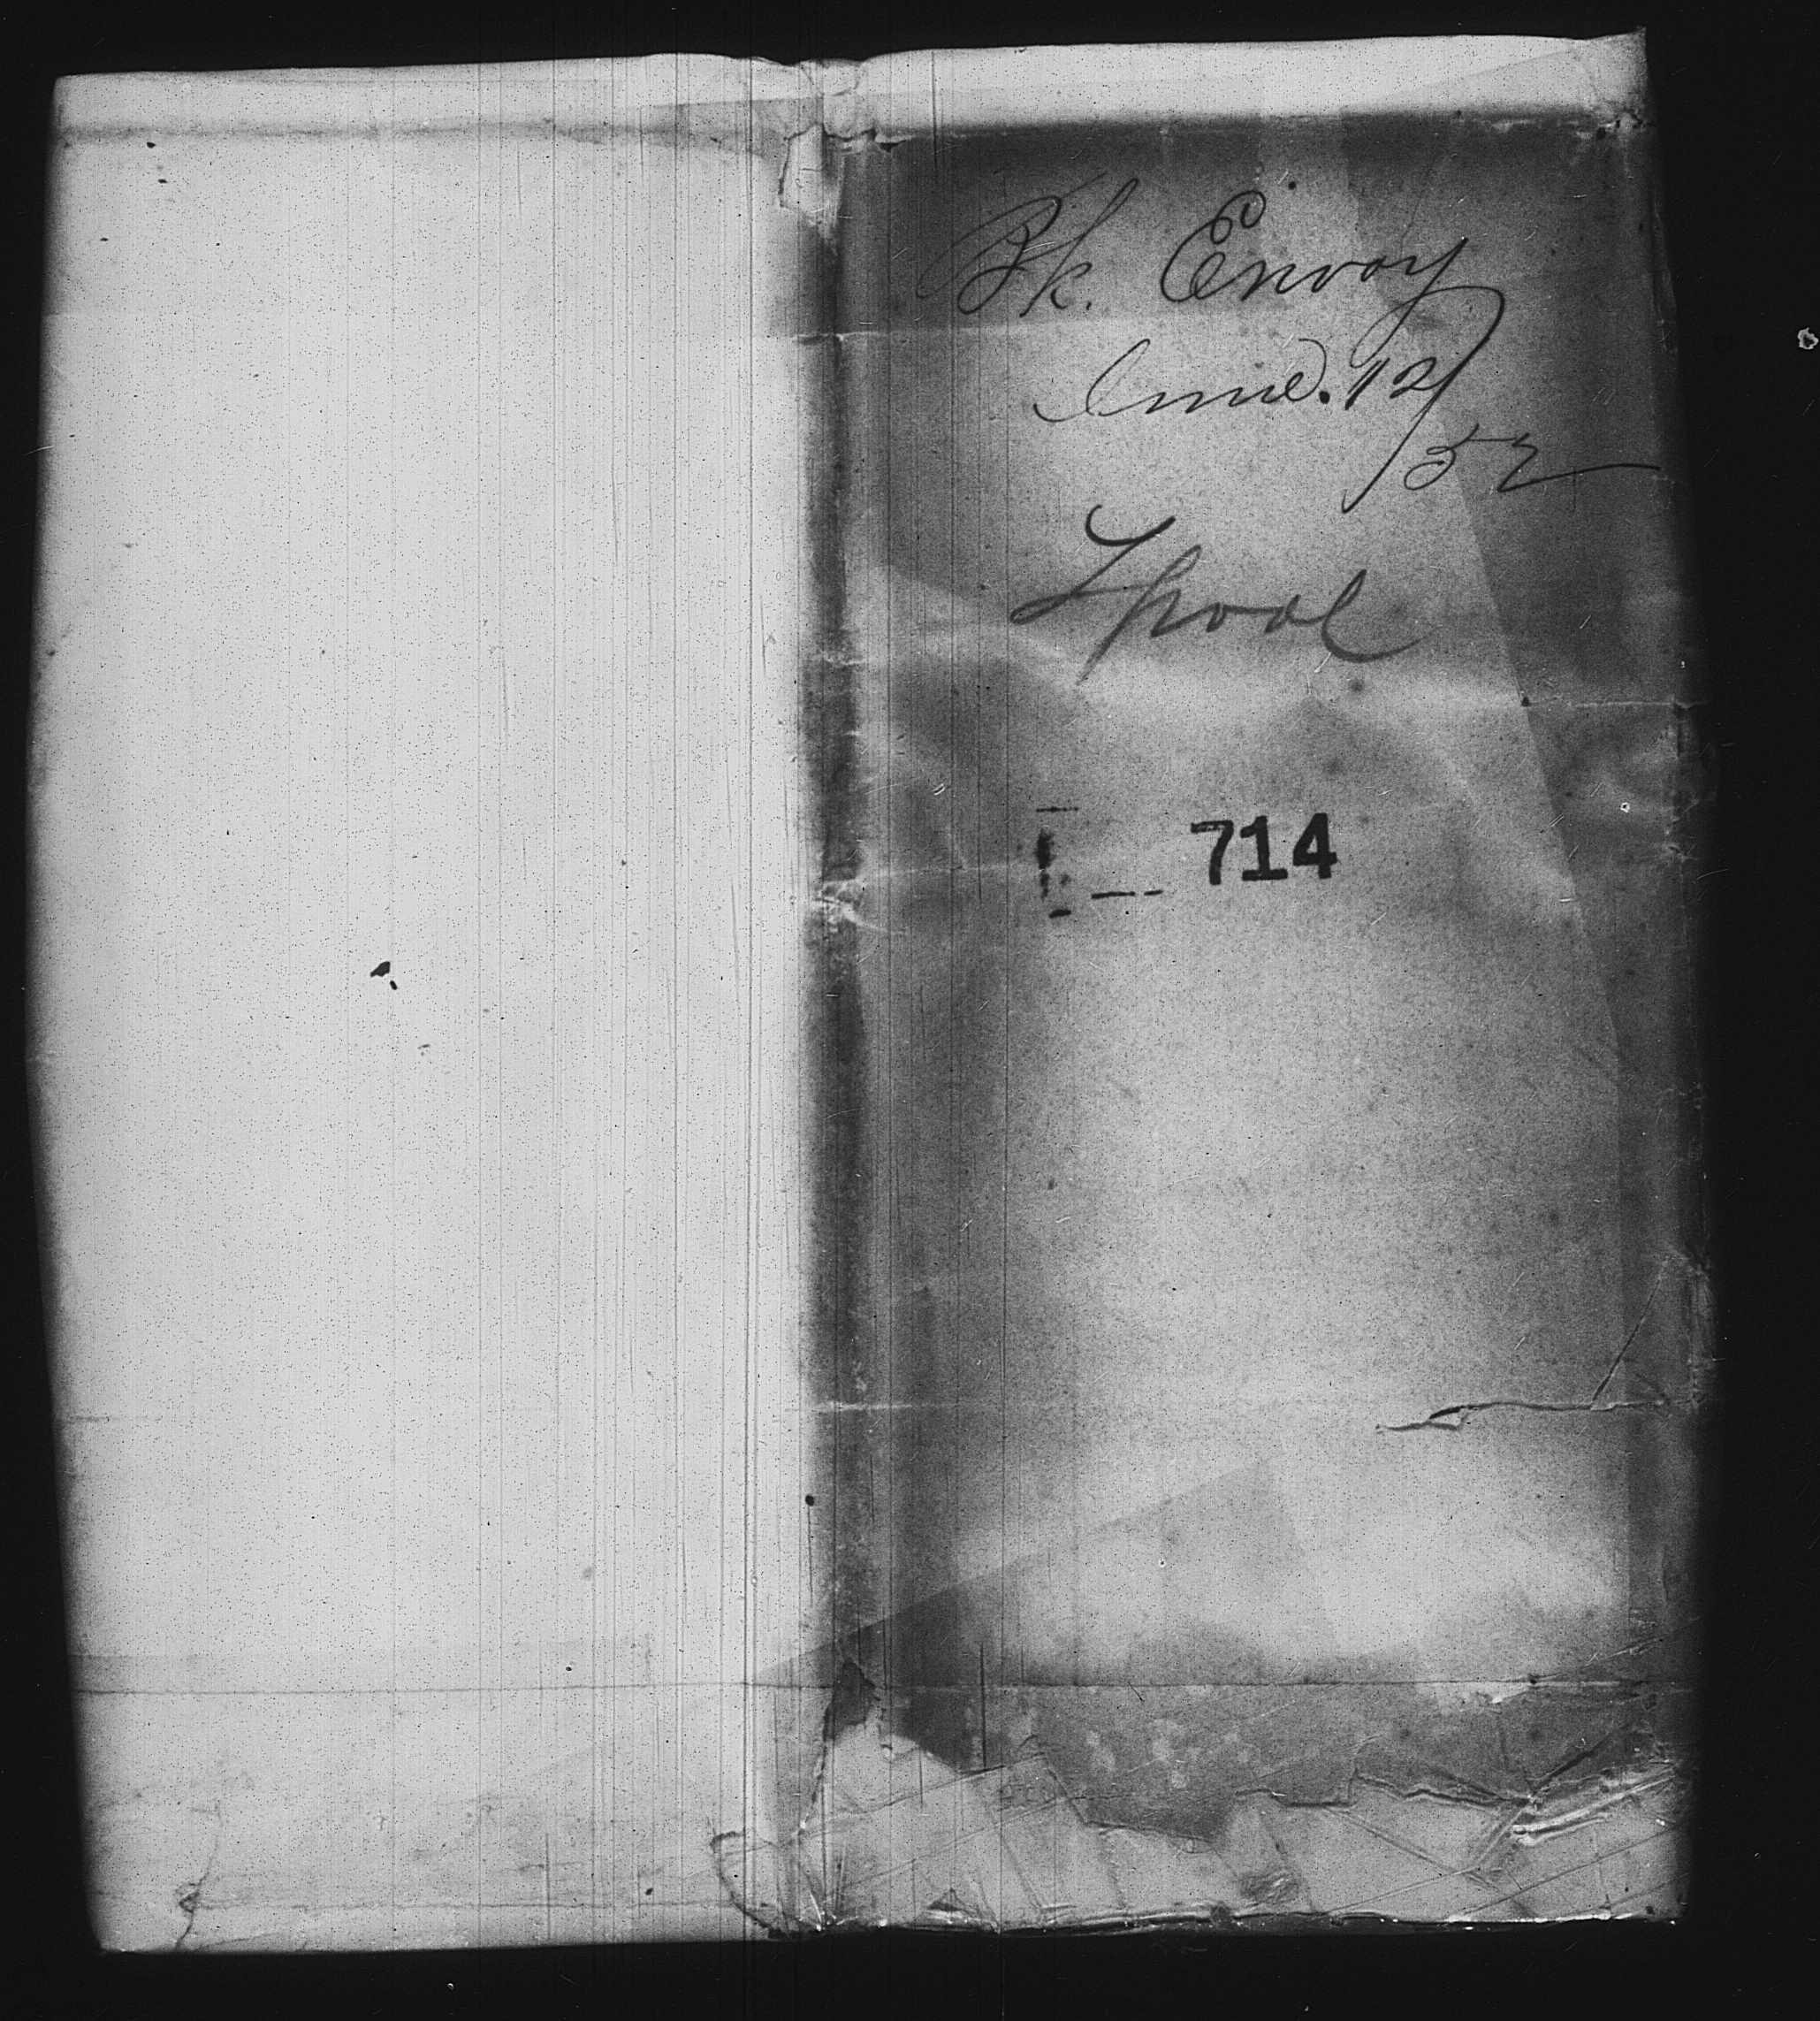 Bk. Envoy
June. 12/
52
Lpool
714